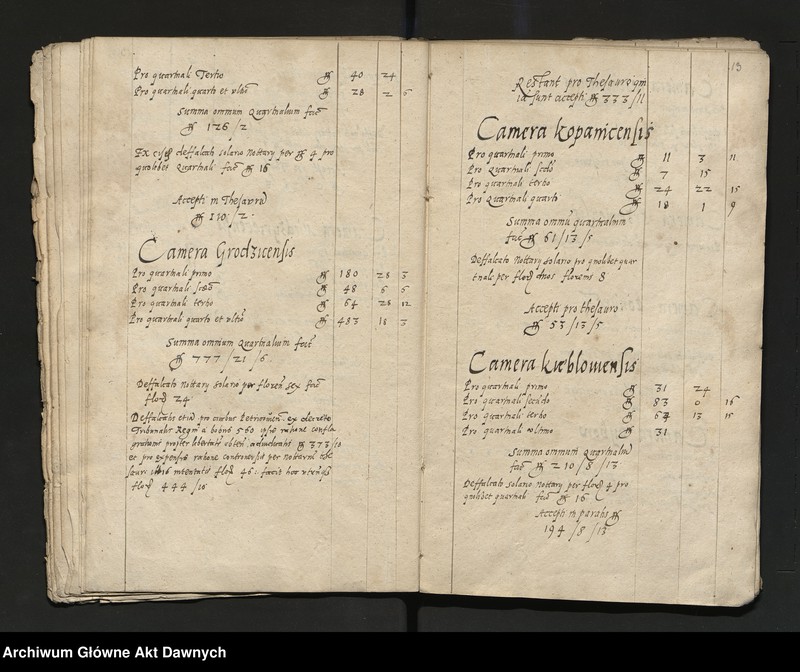 Pro quartuali Tertio fl 40 24
Pro quartuali quarto et ultõ fl 28 2 6
Summa omnium quartualium facit
fl 126 / 2
Ex eisdẽ deffalcato solario Nottary per fl 4 pro
quolibet quartuali facit fl 16
Accepti in Thesaurũ
fl 110 / 2
Camera Grodzicensis
Pro quartuali primo fl 180 28 3
Pro quartuali scdõ fl 48 6 6
Pro quartuali tertio fl 64 28 12
Pro quartuali quarto et ultiõ fl 483 18 3
Summa omnium quartualium facit
fl 777 / 21 / 6
Deffalcato Nottary solario per florẽn sex facit
flor 24
Deffalcatis etiã pro ex decreto
Tribunalis Regni a bonis 560
propter libertatẽ fl 373 / 10
et pro expensis ratione controversiæ per Nottariũ
flor 46 : facit hoc
flor 444 / 16
13
Restant pro Thesauro qui
ia sunt accepti fl 333 / 11
Camera kopanicensis
Pro quartuali primo fl 11 3 11
Pro quartuali scdõ fl 7 15
Pro quartuali tertio fl 24 22 15
Pro quartuali quarto fl 18 1 9
Summa omniũ quartualium
facit fl 61 / 13 / 5
Deffalcato Nottary solario pro quolibet quar
tuale per flor duos florenis 8
Accepti pro thesauro
fl 53 / 13 / 5
Camera kieblovensis
Pro quartuali primo fl 31 24
Pro quartuali secũdo fl 83 0 16
Pro quartuali tertio fl 64 13 15
Pro quartuali ultimo fl 31
Summa omnium quartualiũ
facit fl 210 / 8 / 13
Deffalcato solario Nottary per flor 4 pro
quolibet quartuali facit fl 16
Accepti in paratis fl
194 / 8 / 13
Archiwum Główne Akt Dawnych